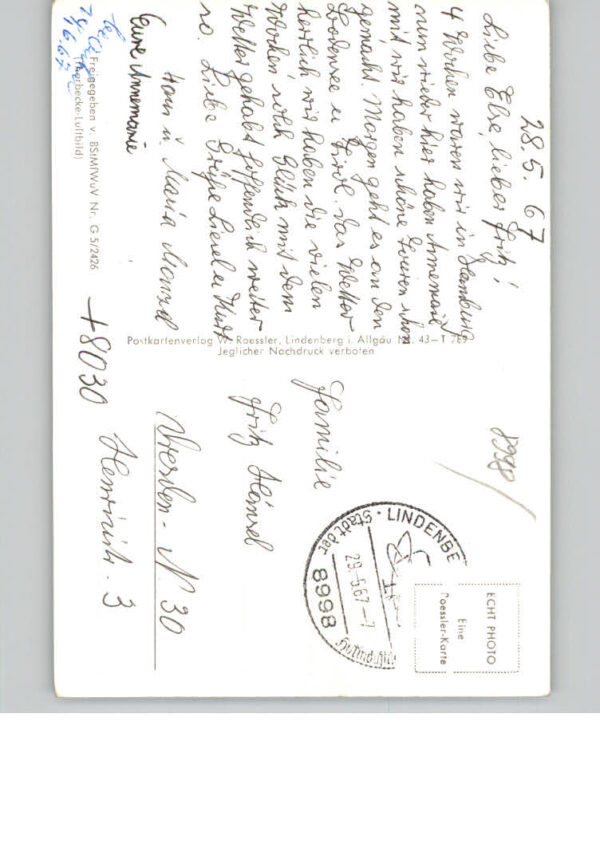 28.5.67
Liebe Else, lieber Fritz!
4 Wochen waren wir in Hamburg
nun wieder hier haben Annemarie
mit wir haben schöne Touren schon
gemacht. Morgen geht es an den
Bodensee u Tirol. das Wetter
herrlich wir haben die vielen
Wochen solch Glück mit dem
Wetter gehabt hoffentlich weiter
so. Liebe Grüße
Hans u. Maria
Eure Annemarie
Freigegeben v. BStMfWuV Nr. G 5/2426
(Thorbecke-Luftbild)
Postkartenverlag W. Roessler, Lindenberg i. Allgäu Nr. 43–T 769
Jeglicher Nachdruck verboten
8998
Familie
Fritz Hänsel
+8030
Dresden - N 30
Heinrich. 3
LINDENBE
Stadt der
29.-5.67.-7
8998
ECHT PHOTO
Eine
Roessler-Karte